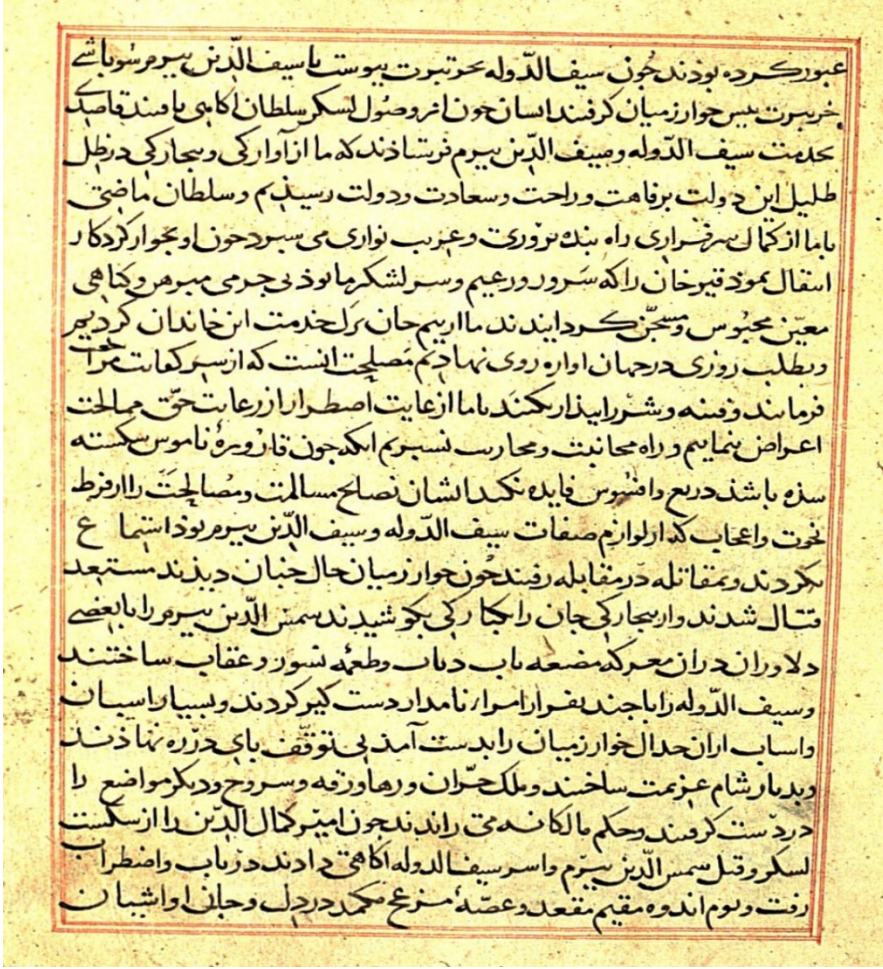 عبور کرده بوذند جُون سیف الدّوله بخرتبرت بیوست با سیف الدّین بیرم سُوباشی
خرتبرت بیس خوارزمیان کرفتند ایشان جون از وصُول لشکر سلطان آکاهی یافتند قاصدی
بخدمت سیف الدّوله و سیف الدّین بیرم فرستاذند که ما از آوارکی و بیجارکی در ظل
ظلیل این دولت برفاهت و راحت و سعادت و دولت رسیذیم و سلطان ماضی
با ما از کمال سرفرازی راه بنده بروری و غریب نوازی می سبرد جون او بجوار کردکار
انتقال نموذ قیرخان را که سَرور و زعیم و سر لشکر ما بوذ بی جرمی مبرهن و کناهی
معیّن محبُوس و مسجّن کردایندند ما از بیم جان ترک خدمت این خاندان کردیم
و بطلب روزی در جهان اواره روی نهادیم مَصلحت انست که از سر کفایت مراجعت
فرمایند و فتنه و شرّ را بیذار نکنند تا ما از غایت اضطرار از رعایت حقّ ممالحت
اعراض ننماییم و راه مجانبت و محاربت نسبریم انکه جون قارُورهٔ ناموس شکسته
شذه باشذ دریغ و افسُوس فایده نکند ایشان نصایح مسالمت و مُصالحَت را از فرط
نخوت و اعجاب که از لوازم صفات سیف الدّوله و سیف الدّین بیرم بوذ استماع
نکردند و بمقاتله در مقابله رفتند جُون خوارزمیان حال جنان دیذند مستعد
قتال شدند و از بیجارکی جان را یکبارکی بکوشیدند شمس الدّین بیرم را با بعضی
دلاوران دران معرکه مضغه ناب ذباب و طعمه نسور و عقاب ساختند
و سیف الدّوله را با جند نفر از امراء نامدار دست کیر کردند و بسیار اسبان
و اسباب ازان جدال خوارزمیان را بدست آمذ بی توقّف بای در ره نهاذند
و بدیار شام عزیمت ساختند و ملک حرّان و رها و رقه و سروج و دیکر مواضع را
در دست کرفتند و حکم مالکانه می راندند جون امیر کمال الدّین را از شکست
لشکر و قتل شمس الدّین بیرم و اسر سیف الدوله آکاهی دادند در تاب و اضطراب
رفت و بوم اندوه مقیم مقعد و غصّهٔ مزعج مکمد در دل و جان او اشیان